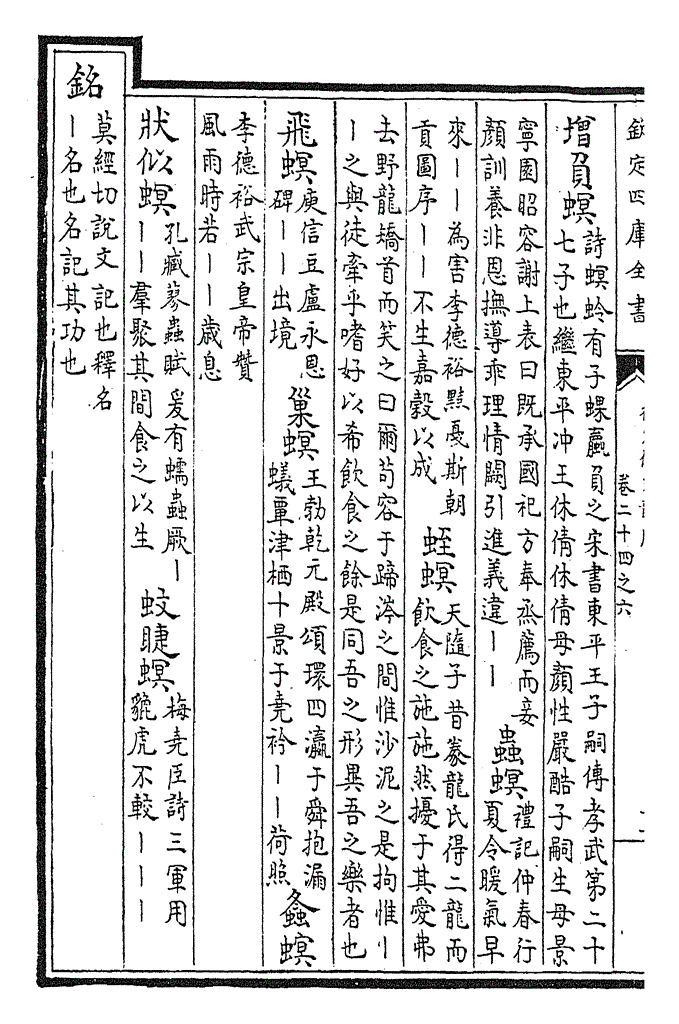 欽定四庫全書
卷二十四之六
增負螟 詩螟蛉有子蜾蠃負之宋書東平王子嗣傳孝武第二十
七子也繼東平冲王休倩休倩母顏性嚴酷子嗣生母景
寧園昭容謝上表曰既承國祀方奉烝薦而妾
顏訓養非恩撫導乖理情闕引進義違丨丨
蟲螟 禮記仲春行
夏令暖氣早
來丨丨為害李德裕黠戛斯朝
貢圖序丨丨不生嘉穀以成
蛭螟 天隨子昔豢龍氏得二龍而
飲食之施施然擾于其愛弗
去野龍矯首而笑之曰爾苟容于蹄涔之間惟沙泥之是拘惟丨
丨之與徒牽乎嗜好以希飲食之餘是同吾之形異吾之樂者也
飛螟 庾信豆盧永恩
碑丨丨出境
巢螟 王勃乾元殿頌環四瀛于舜抱漏
蟻覃津栖十景于堯衿丨丨荷照
螽螟
李德裕武宗皇帝贊
風雨時若丨丨歲息
狀似螟 孔臧蓼蟲賦爰有蠕蟲厥丨
丨丨羣聚其間食之以生
蚊睫螟 梅堯臣詩三軍用
貔虎不較丨丨丨
銘
莫經切說文記也釋名
丨名也名記其功也